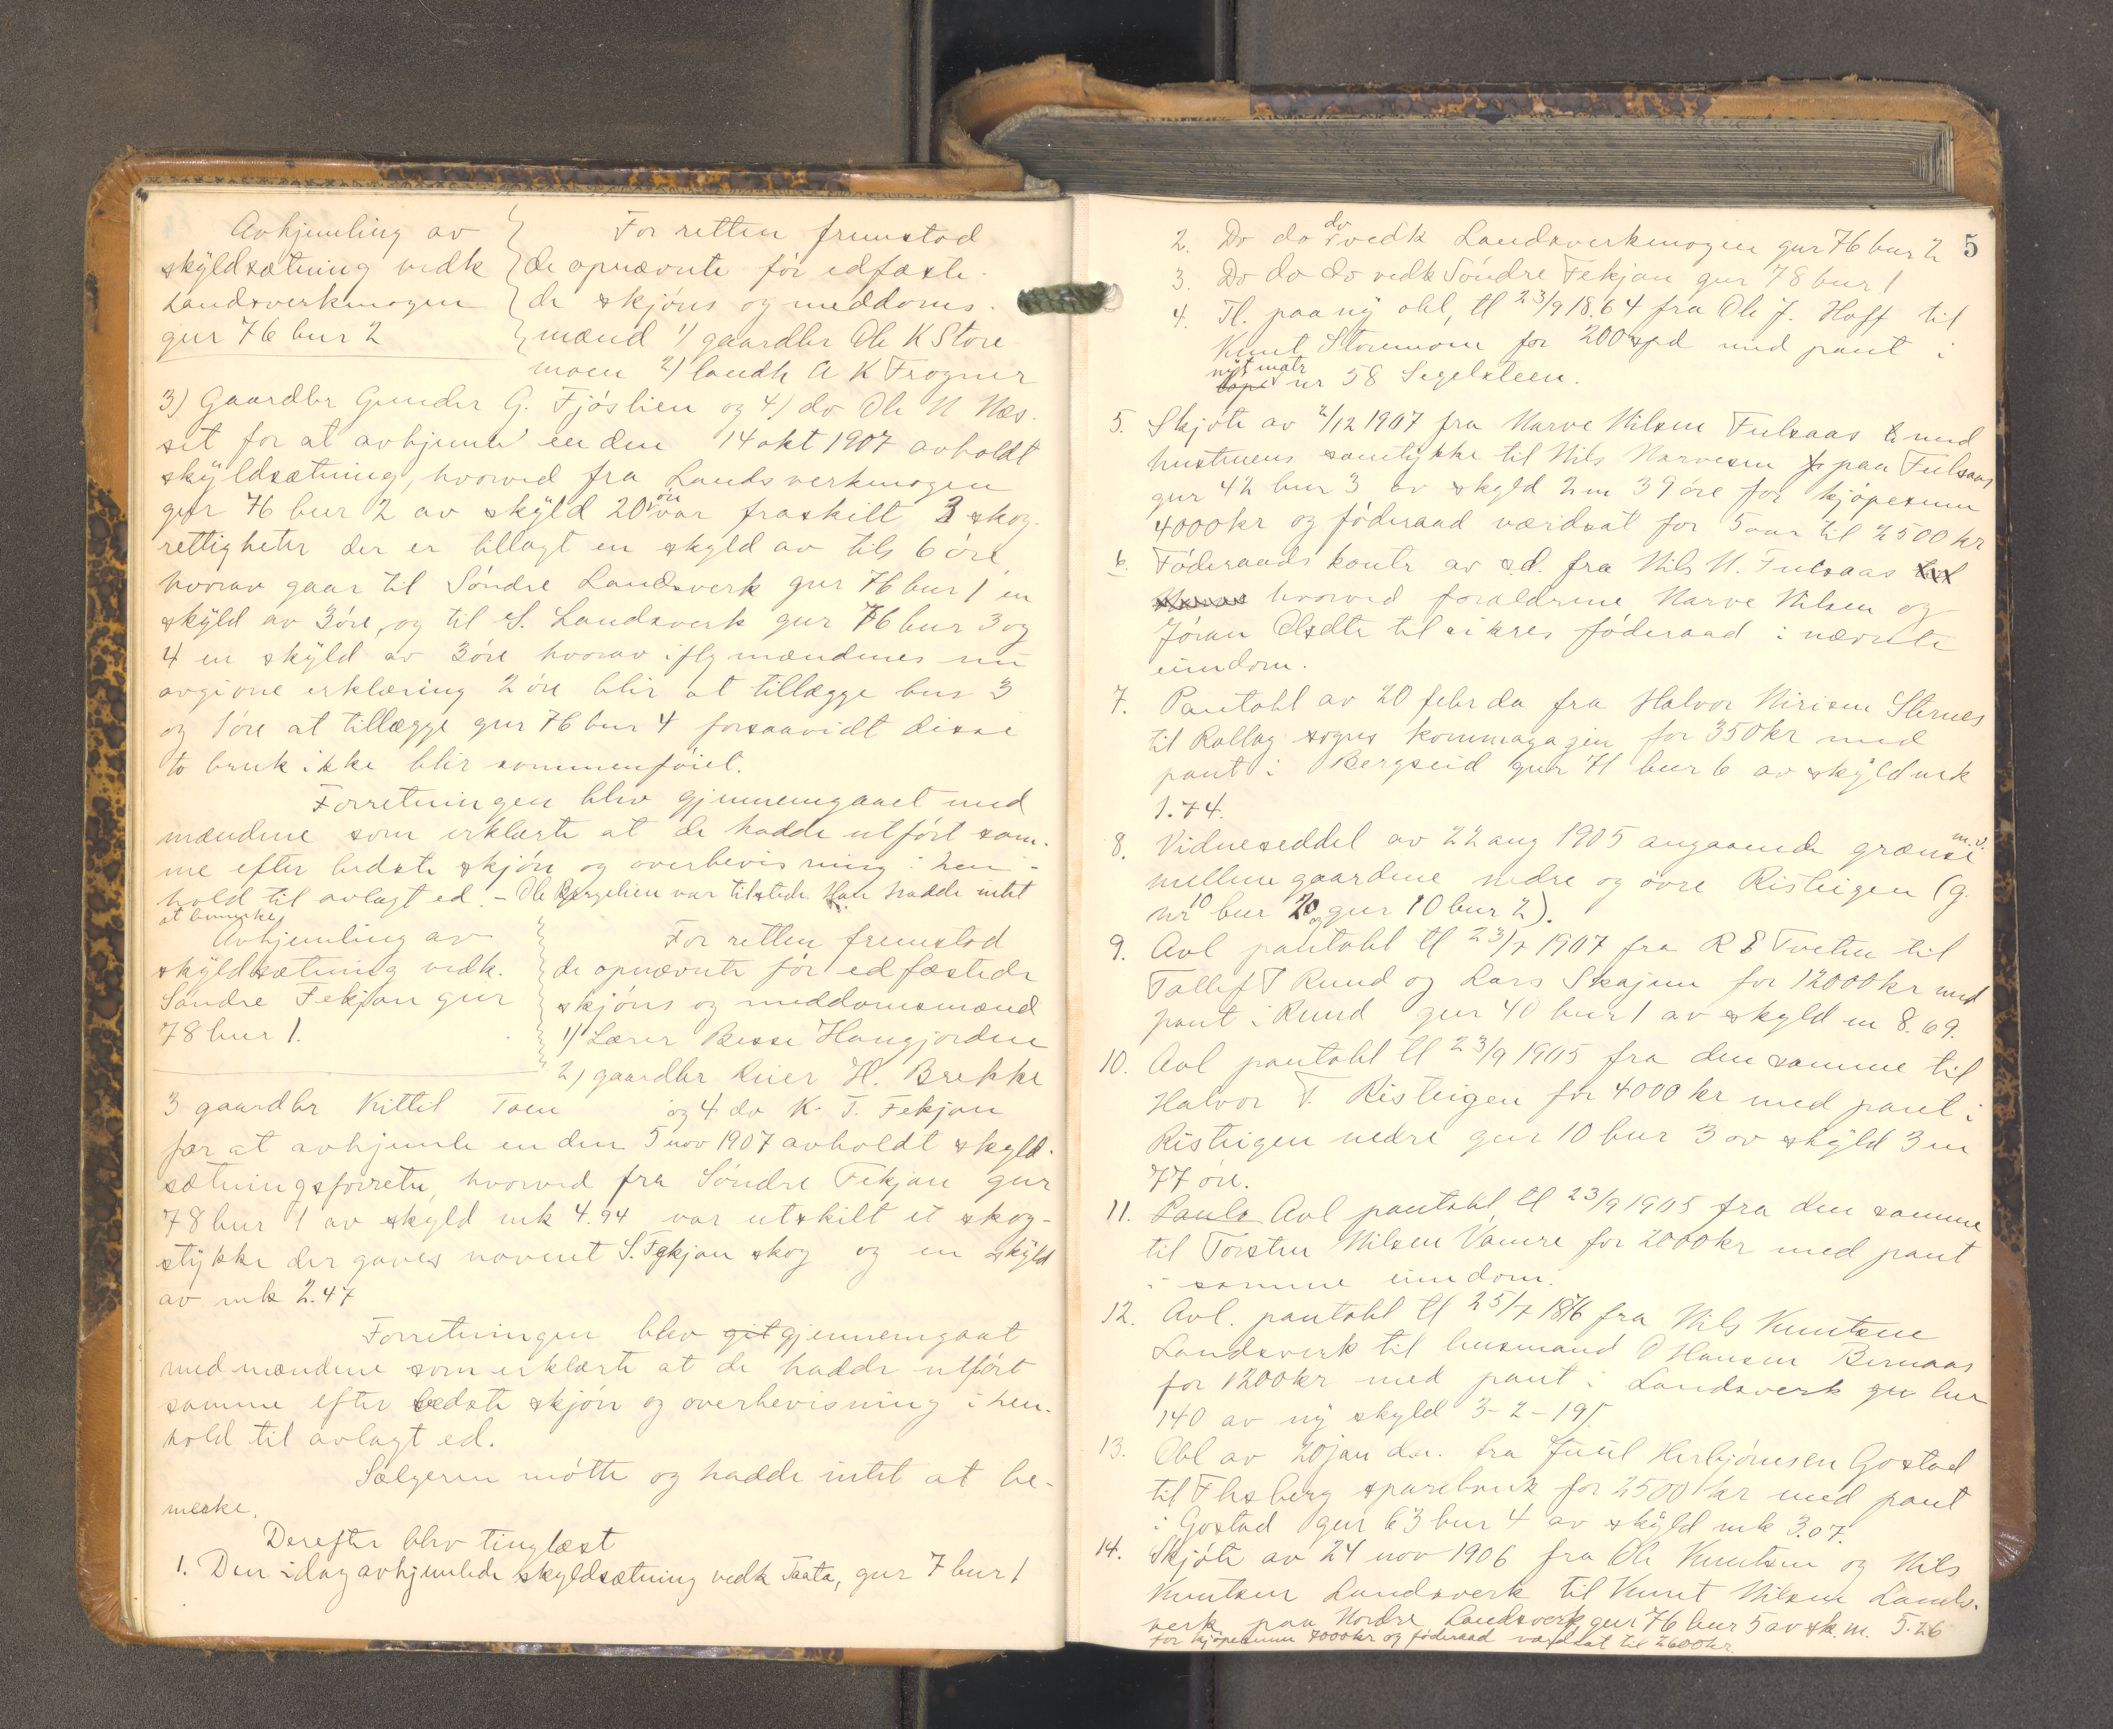 Avhjemling av
skyldsætning vedk
Landsverkmogen
gnr 76 bnr 2
For retten fremstod
de opnævnte før edfæste-
de skjøns og meddoms-
mænd 1) gaardbr Ole K Store
moen 2) landh A K Frogner
3) Gaardbr Gunder G. Fjøslien og 4) do Ole N Næs-
set for at avhjemle en den 14 okt 1907 avholdt
skyldsætning, hvorved fra Landsverkmogen
gnr 76 bnr 2 av skyld 20 øre var fraskilt 3 skog-
rettigheter der er tillagt en skyld av tils 6 øre
hvorav gaar til Søndre Landsverk gnr 76 bnr 1 en
skyld av 3 øre, og til S. Landsverk gnr 76 bnr 3 og
4 en skyld av 3 øre hvorav iflg mændenes nu
avgivne erklæring 2 øre blir at tillægge bnr 3
og 1 øre at tillægge gnr 76 bnr 4 forsaavidt disse
to bruk ikke blir sammenføiet.
Forretningen blev gjennemgaaet med
mændene som erklærte at de hadde utført sam-
me efter bedste skjøn og overbevisning i hen-
hold til avlagt ed. - Ole Bergelien var tilstede. Han hadde intet
at bemerke
Avhjemling av
skyldsætning vedk.
Søndre Fekjan gnr
78 bnr 1.
For retten fremstod
de opnævnte før edfæstede
skjøns og meddomsmænd
1) Lærer Besse Haugjorden
2) gaardbr Reier H. Brekke
3 gaardbr Kittil Toen og 4 do K. T. Fekjan
for at avhjemle en den 5 nov 1907 avholdt skyld-
sætningsforretn, hvorved fra Søndre Fekjan gnr
78 bnr 1 av skyld mk 4.94 var utskilt et skog-
stykke der gaves navnet S. Fekjan skog og en skyld
av mk 2.47
Forretningen blev git gjennemgaat
med mændene som erklærte at de hadde utført
samme efter bedste skjøn og overbevisning i hen-
hold til avlagt ed.
Sælgeren møtte og hadde intet at be-
merke.
Derefter blev tinglæst
1. Den idag avhjemlede skyldsætning vedk Taata, gnr 7 bnr 1
5
2. Do do do vedk Landsverkmogen gnr 76 bnr 2
3. Do do do vedk Søndre Fekjan gnr 78 bnr 1
4. Tl. paa ny obl, tl 23/9 1864 fra Ole J. Hoff til
Knut Storemoen for 200 spd med pant i
nyt matr
løpe nr 58 Segelsteen.
5. Skjøte av 2/12 1907 fra Narve Nilsen Fulsaas med
hustruens samtykke til Nils Narvesen paa Fulsaas
gnr 42 bnr 3 av skyld 2 m 39 øre for kjøpesum
4000 kr og føderaad værdsat for 5 aar til 2500 kr
6. Føderaads kontr av s.d. fra Nils N. Fulsaas til
hvorved forældrene, Narve Nilsen og
Jøran Olsdtr tilsikres føderaad i nævnte
eiendom.
7. Pantobl av 20 febr da fra Halvor Nirisen Sternes
til Rollag sogns kornmagagin for 350 kr med
pant i Bergseid gnr 71 bnr 6 av skyld mk
1.74.
8. Vidneseddel av 22 aug 1905 angaaende grænse m.v.
mellem gaardene nedre og øvre Risteigen (g.
nr 10 bnr 20 og gnr 10 bnr 2).
9. Avl pantobl tl 23/7 1907 fra R E Tveten til
Tollef T Ruud og Lars Skajem for 12000 kr med
pant i Ruud gnr 40 bnr 1 av skyld m 8.69.
10. Avl pantobl tl 23/9 1905 fra den samme til
Halvor T. Risteigen for 4000 kr med pant i
Risteigen nedre gnr 10 bnr 3 av skyld 3 m
77 øre.
11. Panto Avl pantobl, tl 23/9 1905 fra den samme
til Torsten Nilsen Vamre for 2000 kr med pant
i samme eiendom.
12. Avl. pantobl tl 25/7 1876 fra Nils Knutsen
Landsverk til husmand O Hansen Bernaas
for 1200 kr med pant i Landsverk gn lnr
140 av ny skyld 3-2-19.
13. Obl av 20 jan da. fra Juul Herbjørnsen Gostad
til Flesberg sparebank for 2500 kr med pant
i Gostad gnr 63 bnr 4 av skyld mk 3.07.
14. Skjøte av 24 nov 1906 fra Ole Knutsen og Nils
Knutsen Landsverk til Knut Nilsen Lands-
verk paa Nordre Landsverk gnr 76 bnr 5 av sk. m. 5.26
for kjøpesum 7000 kr og føderaad værdsat til 2600 kr.